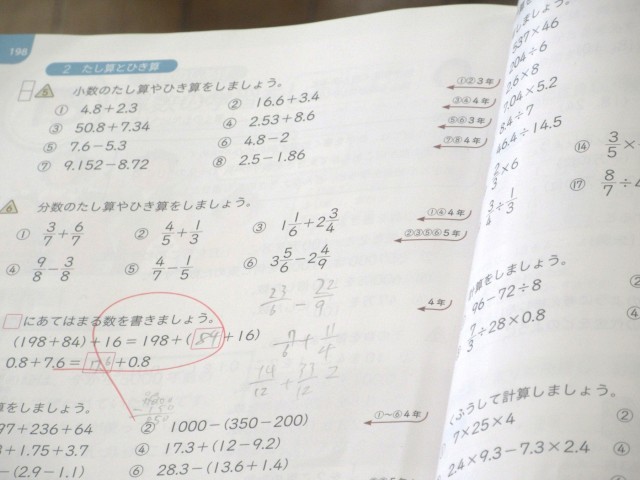 198
2 たし算とひき算
5 小数のたし算やひき算をしましょう。
① 4.8+2.3 ② 16.6+3.4 ①②3年
③ 50.8+7.34 ④ 2.53+8.6 ③④4年
⑤ 7.6-5.3 ⑥ 4.8-2 ⑤⑥3年
⑦ 9.152-8.72 ⑧ 2.5-1.86 ⑦⑧4年
6 分数のたし算やひき算をしましょう。
① 3/7+6/7 ② 4/5+1/3 ③ 1 1/6+2 3/4 ①④4年
②③⑤⑥5年
④ 9/8-3/8 ⑤ 4/7-1/5 ⑥ 3 5/6-2 4/9
23/6 - 22/9
□にあてはまる数を書きましょう。 4年
(198+84)+16=198+(84+16) 7/6+11/4
0.8+7.6=7.6+0.8 14/12+33/12
算をしましょう。
97+236+64 ② 1000-(350-200) ①~⑥4年
+1.75+3.7 ④ 17.3+(12-9.2)
-(2.9-1.1) ⑥ 28.3-(13.6+1.4)
しましょう。
537×46
204÷6
2.6×8
7.04×5.2
8.4÷7
46.4÷14.5
⑭ 3/5×
2/3×6
⑰ 8/7÷4
3/4÷1/3
計算をしましょう。
96-72÷8
7/3÷28×0.8
くふうして計算しましょう。
7×25×4 ②
2.4×9.3-7.3×2.4 ④